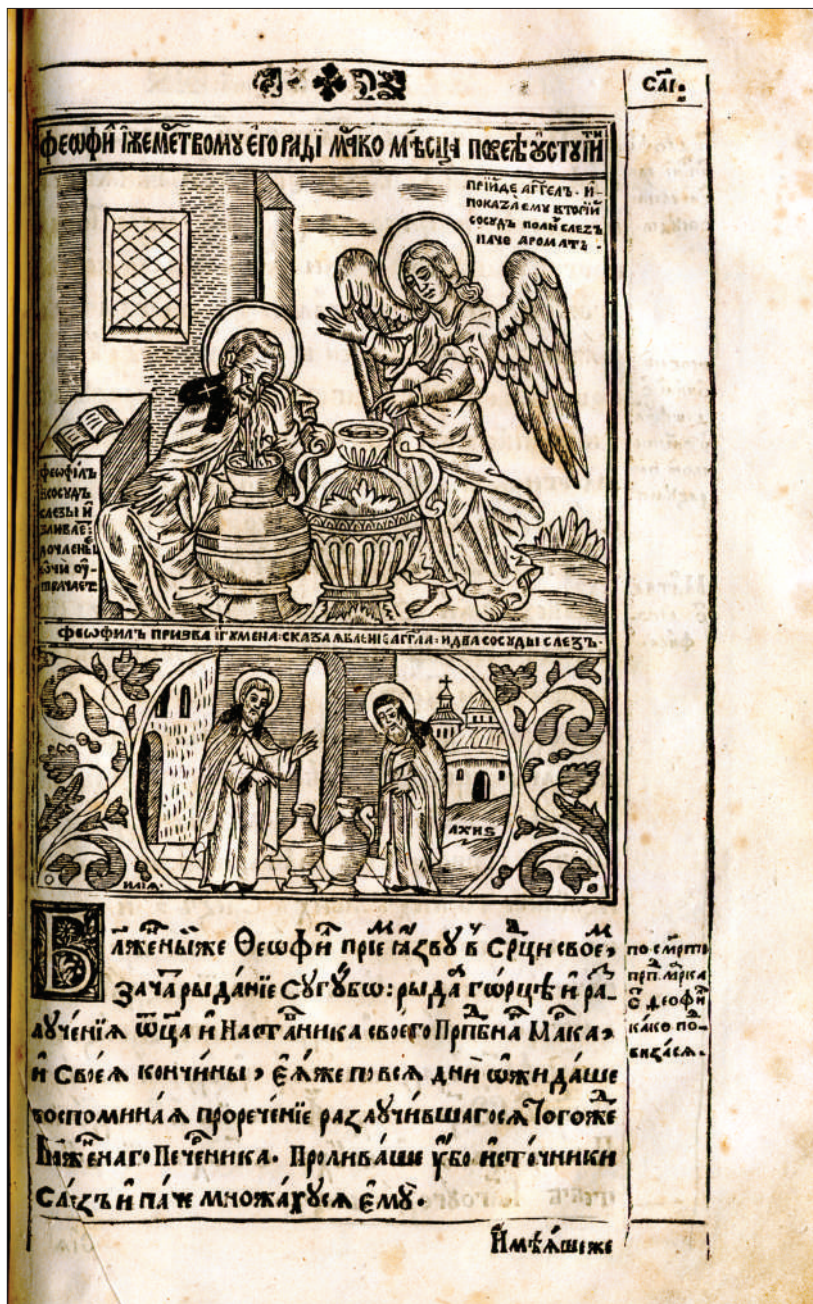 СЛІ:
ФЕѠФИ҇Л ІЖЕ МЕ҇ТВОМУ ЕГО РАДІ МА҇КО МѢСЦА ПОВЕЛѢ ѸСТУПИ҇ТИ
ПРІИДЕ АГГЕЛЪ · И҆
ПОКАЗА ЕМУ ВТОРІЙ
СОСУДЪ ПОЛН СЛЕЗЪ
ПАЧЕ АРОМАТЪ ·
ФЕѠФІЛЪ
В СОСУДЪ
СЛЕЗЫ И҆
ЗЛИВАЕ҇:
ФЕѠФИЛЪ ПРИЗВА ІГУМЕНА : СКАЗА ЯВЛЕНІЕ АГГЛА : И ДВА СОСУДЫ СЛЕЗЪ ·
АХНЅ
ИЛІѦ ·
Бла҇же́ны́йже Ѳеѡфи́л прїе́м ꙗ҆́зву в҆ се́рдци свое́м,
зача́т рыда́нїе сугу́бѡ : рыда́ѧ го́рцѣ и҆ ра-
злуче́нїѧ ѿца̀ и҆ наста́вника своегѡ̀ Прп҇бна Ма́рка,
и҆ своеѧ̀ кончи́ны, є҆ѧ́же по всѧ̀ дни̑ ѡ҆жида́ше
воспомина́ѧ прорече́нїе разлучи́вшагосѧ Тогѡ́же
Бл҃же́ннаго Пече́рника. Пролива́ше у҆́бо и҆сто́чники
слезъ и҆ па́че мно́жахусѧ є҆мꙋ̀.
по сме́рти
прп҇д. ма́рка
С. Ѳеофи҇л
ка́ко по-
виза́сѧ.
И҆мѣѧ́шеже